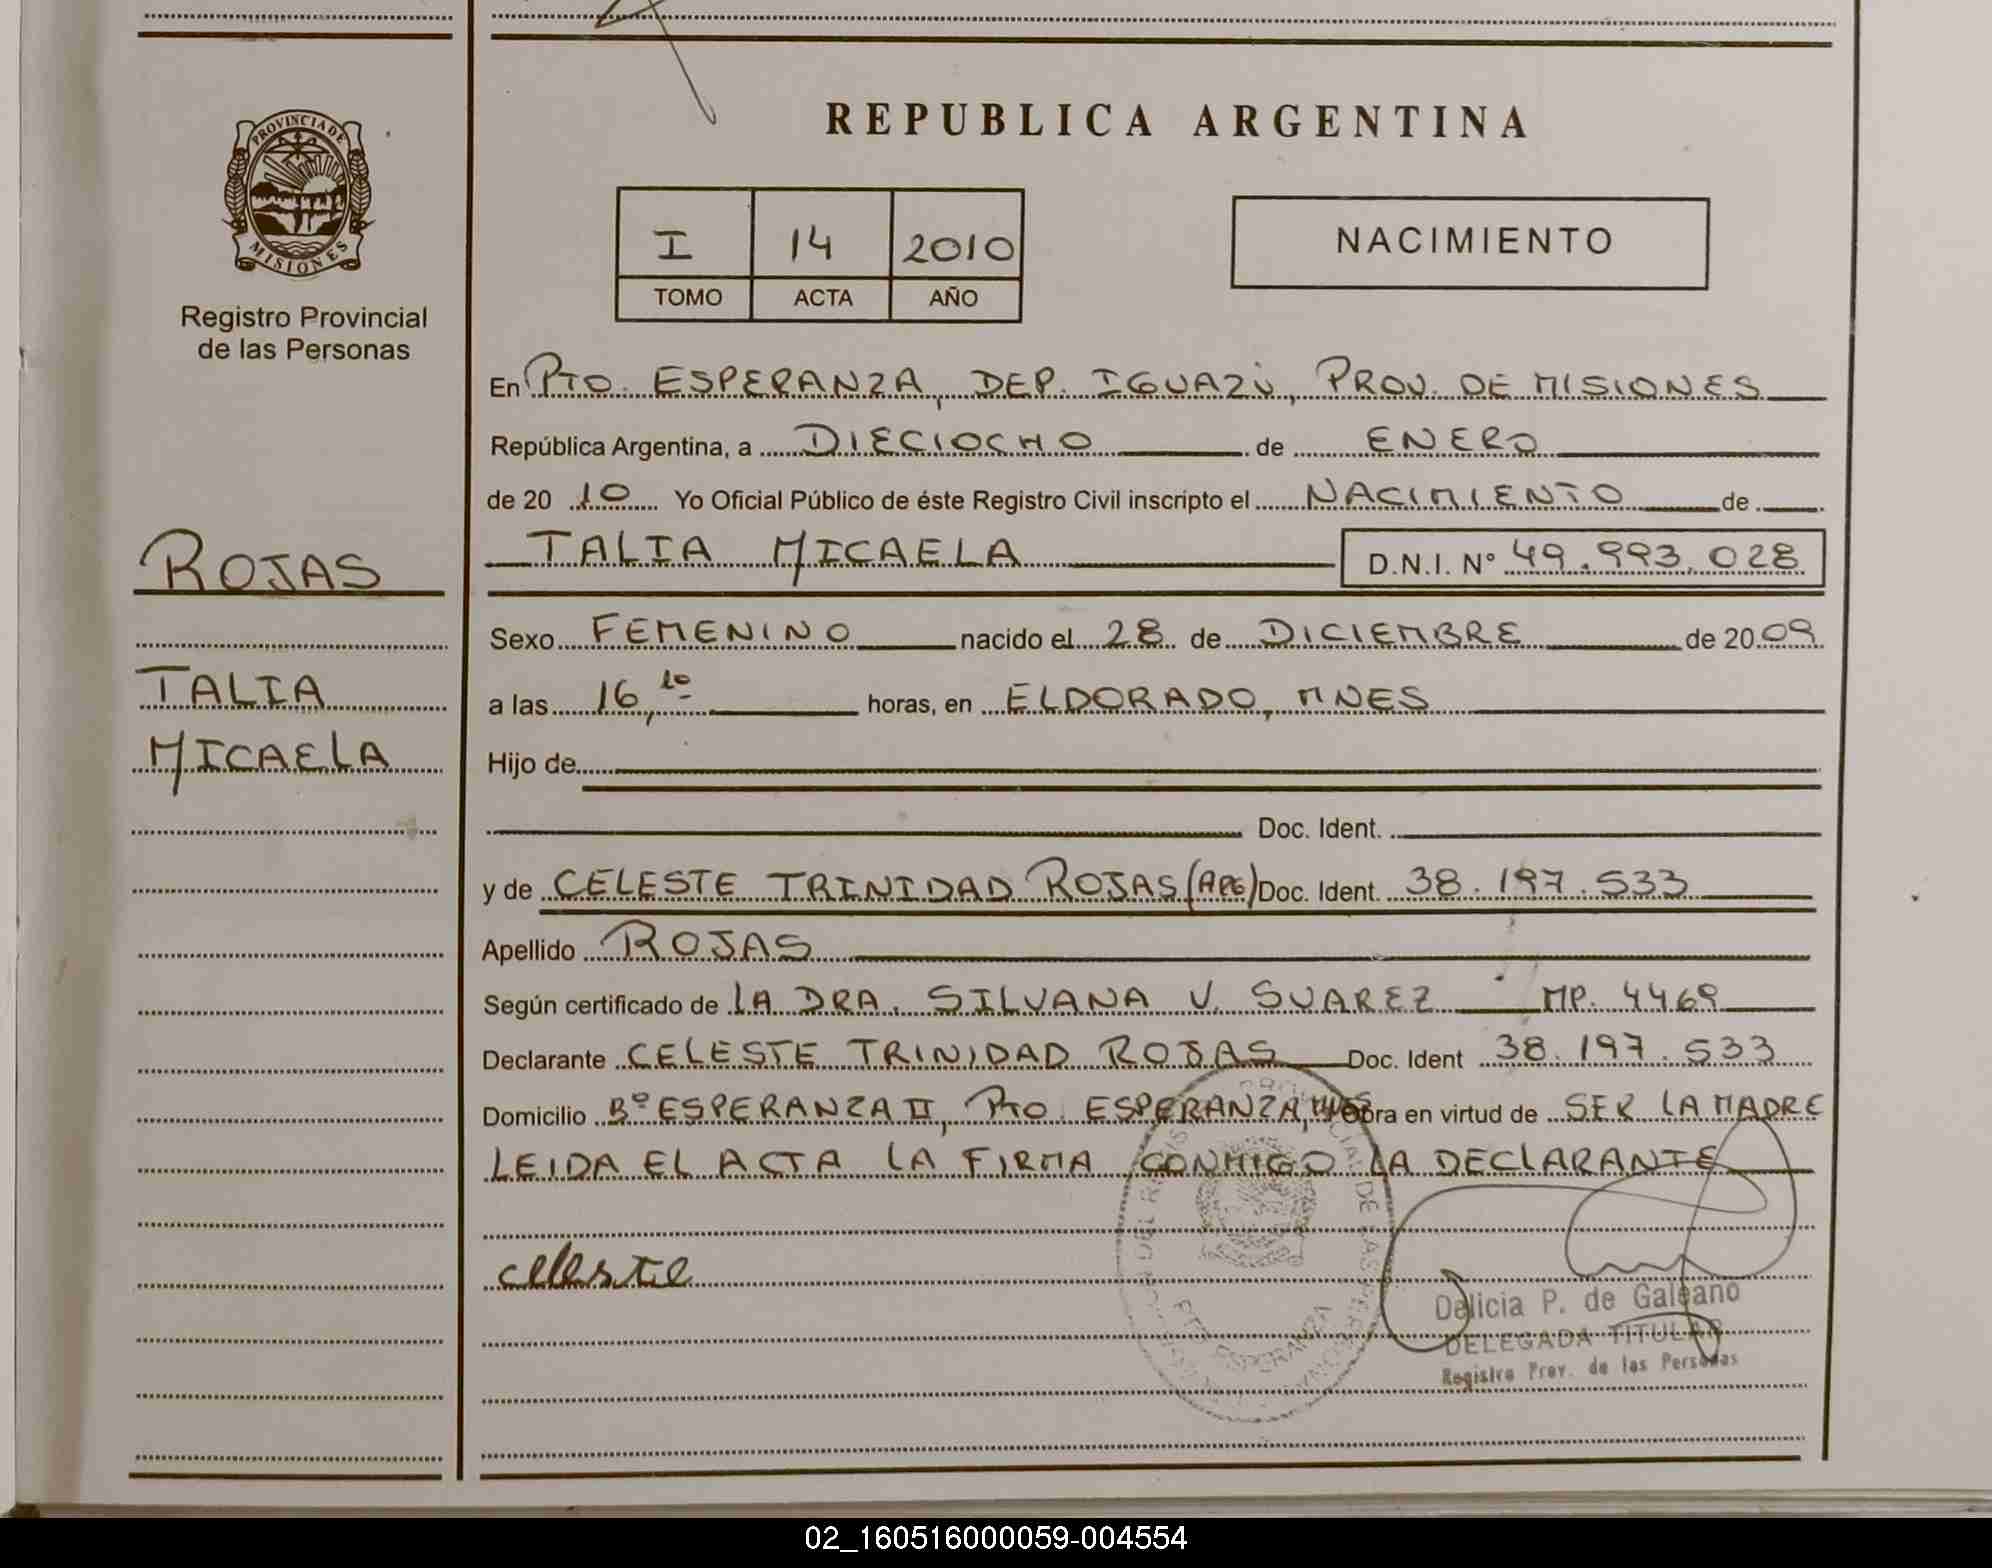 PROVINCIA DE
MISIONES
Registro Provincial
de las Personas
ROJAS
TALIA
MICAELA
REPUBLICA ARGENTINA
I 14 2010
TOMO ACTA AÑO
NACIMIENTO
En PTO. ESPERANZA, DEP. IGUAZÚ, PROV. DE MISIONES
República Argentina, a DIECIOCHO de ENERO
de 20 10 Yo Oficial Público de éste Registro Civil inscripto el NACIMIENTO de
TALIA MICAELA D.N.I. N° 49.993.028
Sexo FEMENINO nacido el 28 de DICIEMBRE de 20 09
a las 16,10 horas, en ELDORADO, MNES
Hijo de
Doc. Ident.
y de CELESTE TRINIDAD ROJAS (ARG) Doc. Ident. 38.197.533
Apellido ROJAS
Según certificado de LA DRA. SILVANA V. SUAREZ MP. 4469
Declarante CELESTE TRINIDAD ROJAS Doc. Ident 38.197.533
Domicilio B° ESPERANZA II, PTO. ESPERANZA, MNES Obra en virtud de SER LA MADRE
LEIDA EL ACTA LA FIRMA CONMIGO LA DECLARANTE
celeste
PTO ESPERANZA
Delicia P. de Galeano
DELEGADA TITULAR
Registro Prov. de las Personas
02_160516000059-004554